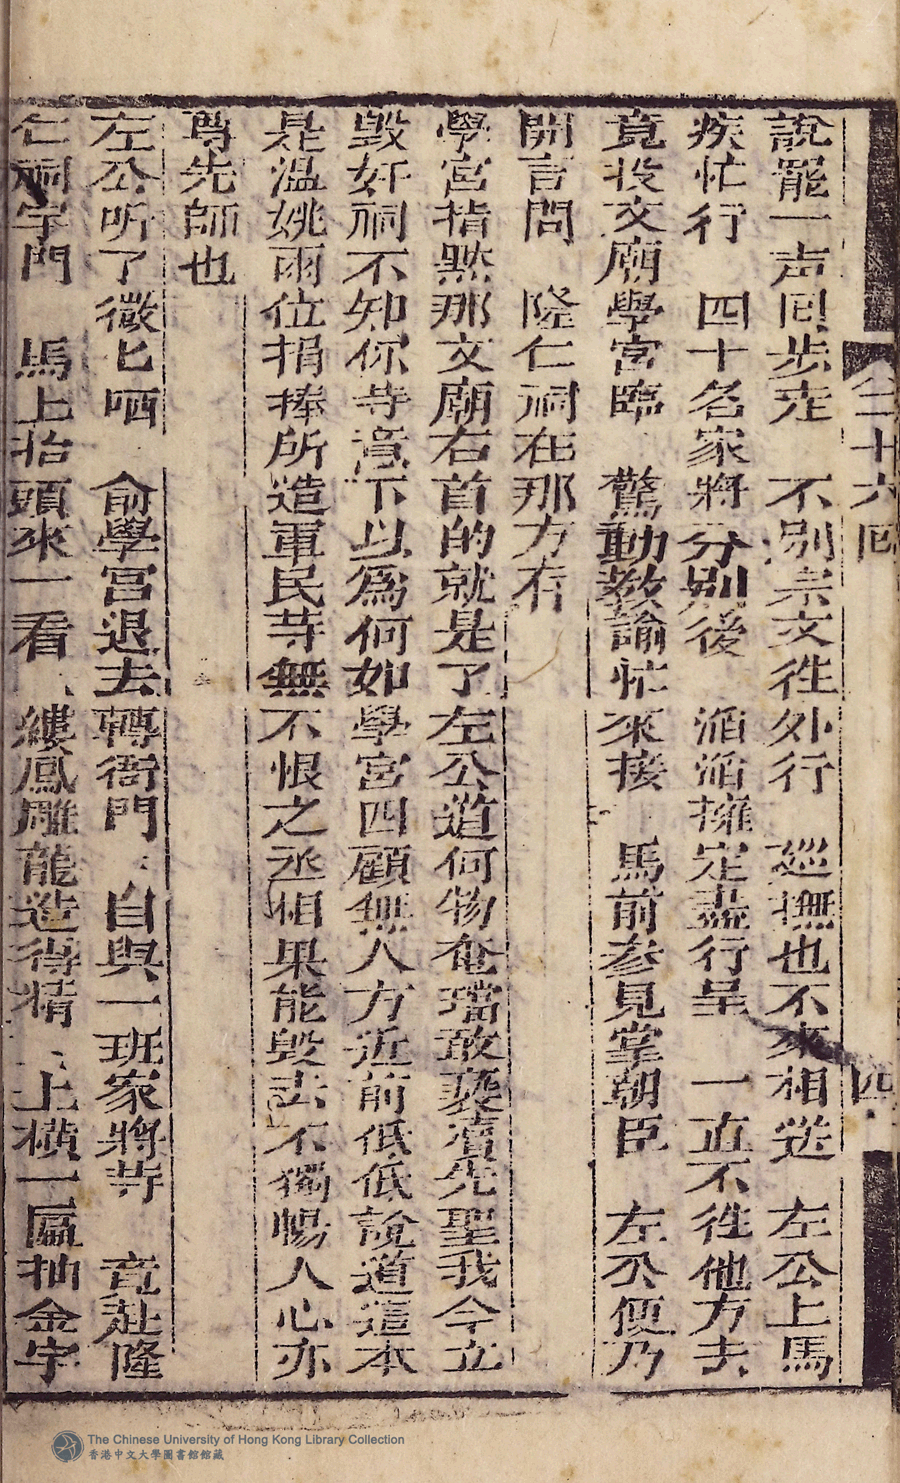 二十六回 四
說罷一声囘步走 不別宗文徃外行 巡撫也不來相送 左公上馬
疾忙行 四十名家將分別後 滔滔擁定盡行呈 一直不徃他方去
竟投文廟學宮臨 驚動教諭忙來接 馬前参見掌朝臣 左公便乃
開言問 隆仁祠在那方存
學宮指㸃那文廟右首的就是了左公道何物奄璫敢褻瀆先聖我今立
毀奸祠不知你䓁意下以爲何如學宮四顧無人方近前低低說道這本
是溫姚兩位捐俸所造軍民䓁無不恨之丞相果能毁去不獨暢人心亦
尊先師也
左公听了微匕哂 俞學宮退去轉衙門 自與一班家將䓁 竟赴隆
仁祠宇門 馬上抬頭來一看 縷鳳雕龍造得精 上橫一匾抽金字
The Chinese University of Hong Kong Library Collection
香港中文大學圖書館館藏